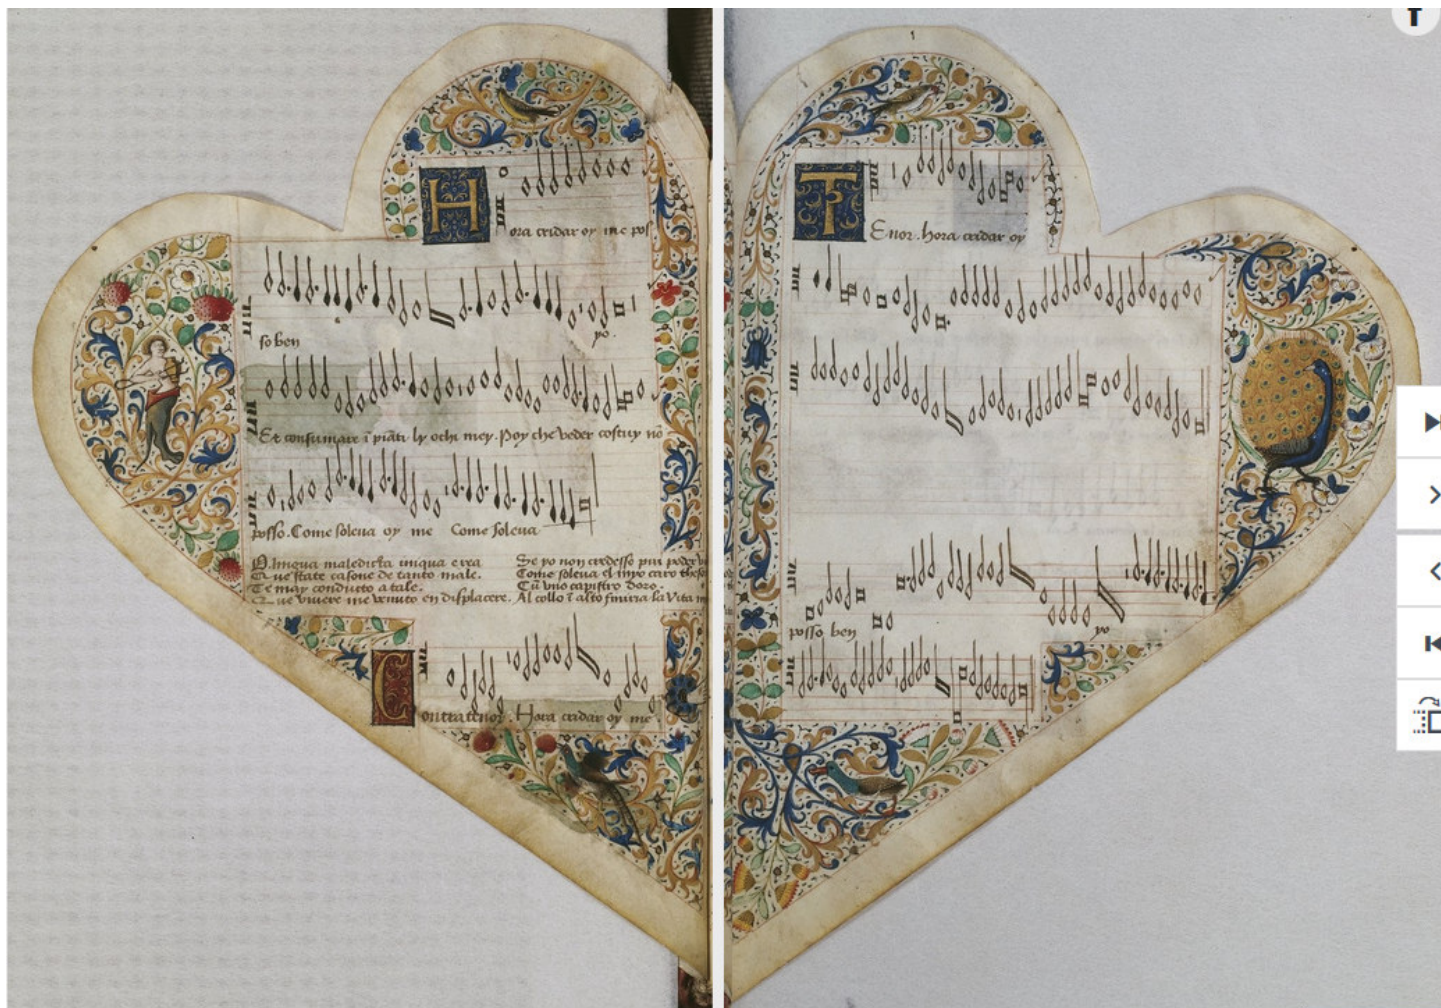 Hora cridar oy me pos
so ben yo.
Et consumare i piāti ly ochi mey. Poy che veder costuy nō
posso. Come soleua oy me Come soleua
O lingua maledicta iniqua e rea
Que state casone de tanto male.
Te may conducto a tale.
Que viuere me venuto en displacere.
Se yo non credesso piu poder
Come soleua el myo caro
Cū vno capistro doro.
Al collo ī alto finiria la vita
Contratenor. Hora cridar oy me
TEnor. hora cridar oy
posso ben yo
f